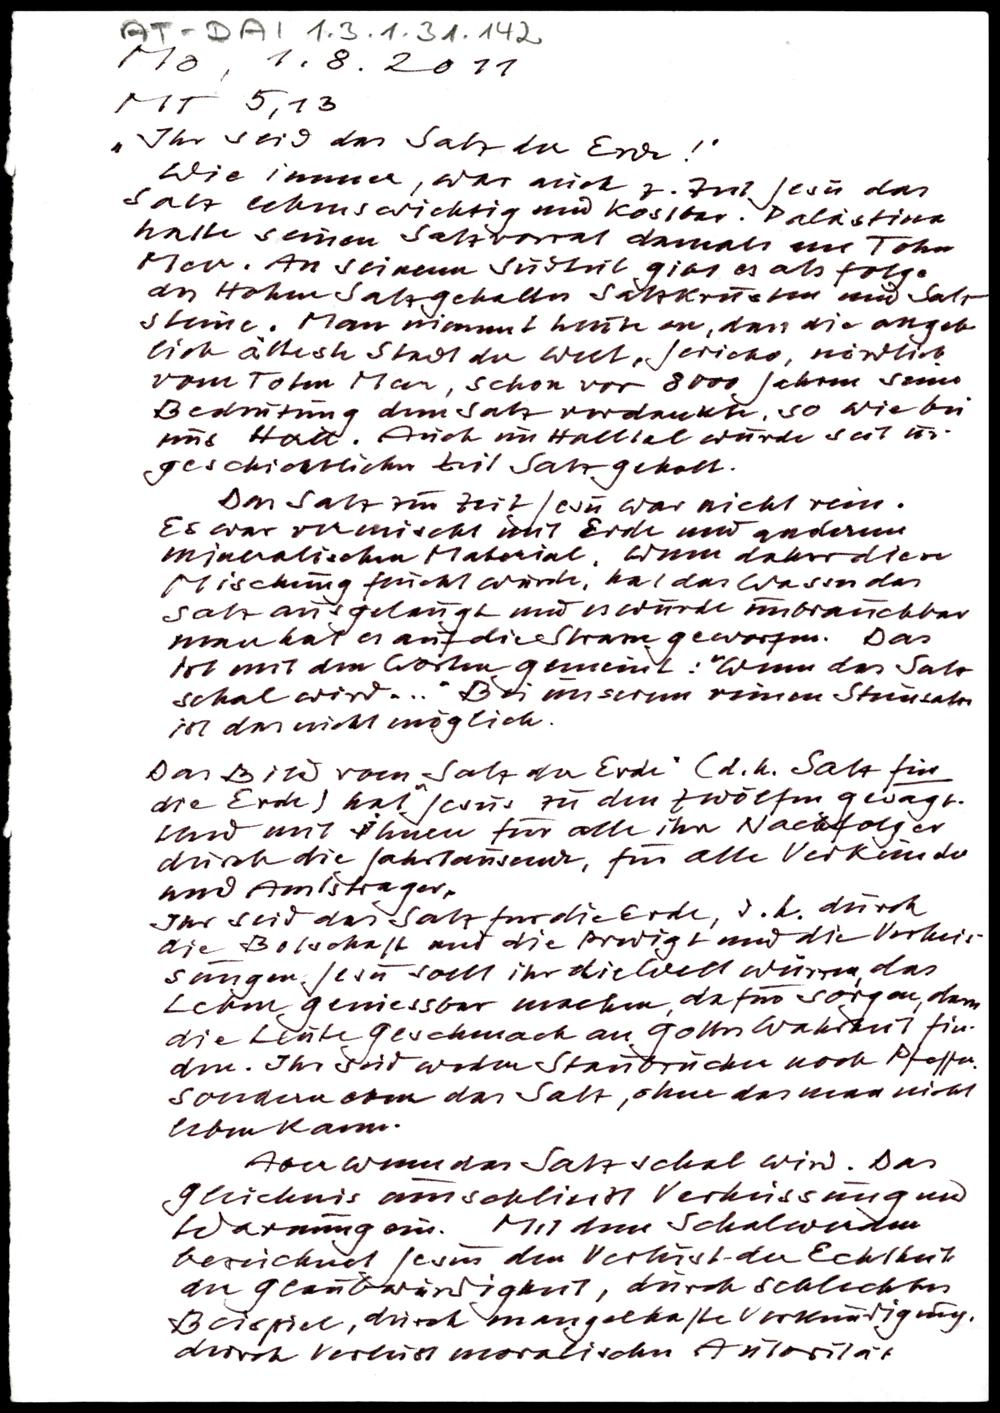 AT-DAI 1.3.1.31.142
Mo, 1.8.2011
MT 5,13
"Ihr seid das Salz der Erde!"
Wie immer, war auch z. Zeit Jesu das
Salz lebenswichtig und kostbar. Palästina
hatte seinen Salzvorrat damals am Toten
Meer. An seinem Südteil gibt es als Folge
des Hohen Salzgehaltes Salzkrusten und Salz
steine. Man nimmt heute an, dass die angeb
lich älteste Stadt der Welt, Jericho, nördlich
vom Toten Meer, schon vor 8000 Jahren seine
Bedeutung dem Salz verdankte, so wie bei
uns Hall. Auch im Halltal wurde seit ur-
geschichtlicher Zeit Salz geholt.
Das Salz zur Zeit Jesu war nicht rein.
Es war vermischt mit Erde und anderem
mineralischen Material. Wenn daher diese
Mischung feucht wurde, hat das Wasser das
Salz ausgelaugt und es wurde unbrauchbar
man hat es auf die Strasse geworfen. Das
ist mit den Worten gemeint: "Wenn das Salz
schal wird..." Bei unserem reinen Steinsalz
ist das nicht möglich.
Das Bild vom "Salz der Erde" (d.h. Salz für
die Erde) hat Jesus zu den Zwölfen gesagt.
Und mit ihnen für alle ihre Nachfolger
durch die Jahrtausende, für alle Verkünder
und Amtsträger.
Ihr seid das Salz für die Erde, d.h. durch
die Botschaft und die Predigt und die Verheis-
sungen Jesu sollt ihr die Welt würzen, das
Leben geniessbar machen, dafür sorgen, dass
die Leute Geschmack an Gottes Wahrheit fin-
den. Ihr seid weder Staubzucker noch Pfeffer.
Sondern eben das Salz, ohne das man nicht
leben kann.
Aber wenn das Salz schal wird. Das
Gleichnis umschliesst Verheissung und
Warnung ein. Mit dem Schalwerden
bezeichnet Jesus den Verlust der Echtheit
der Glaubwürdigkeit, durch schlechtes
Beispiel, durch mangelhafte Verkündigung,
durch Verlust moralischer Autorität